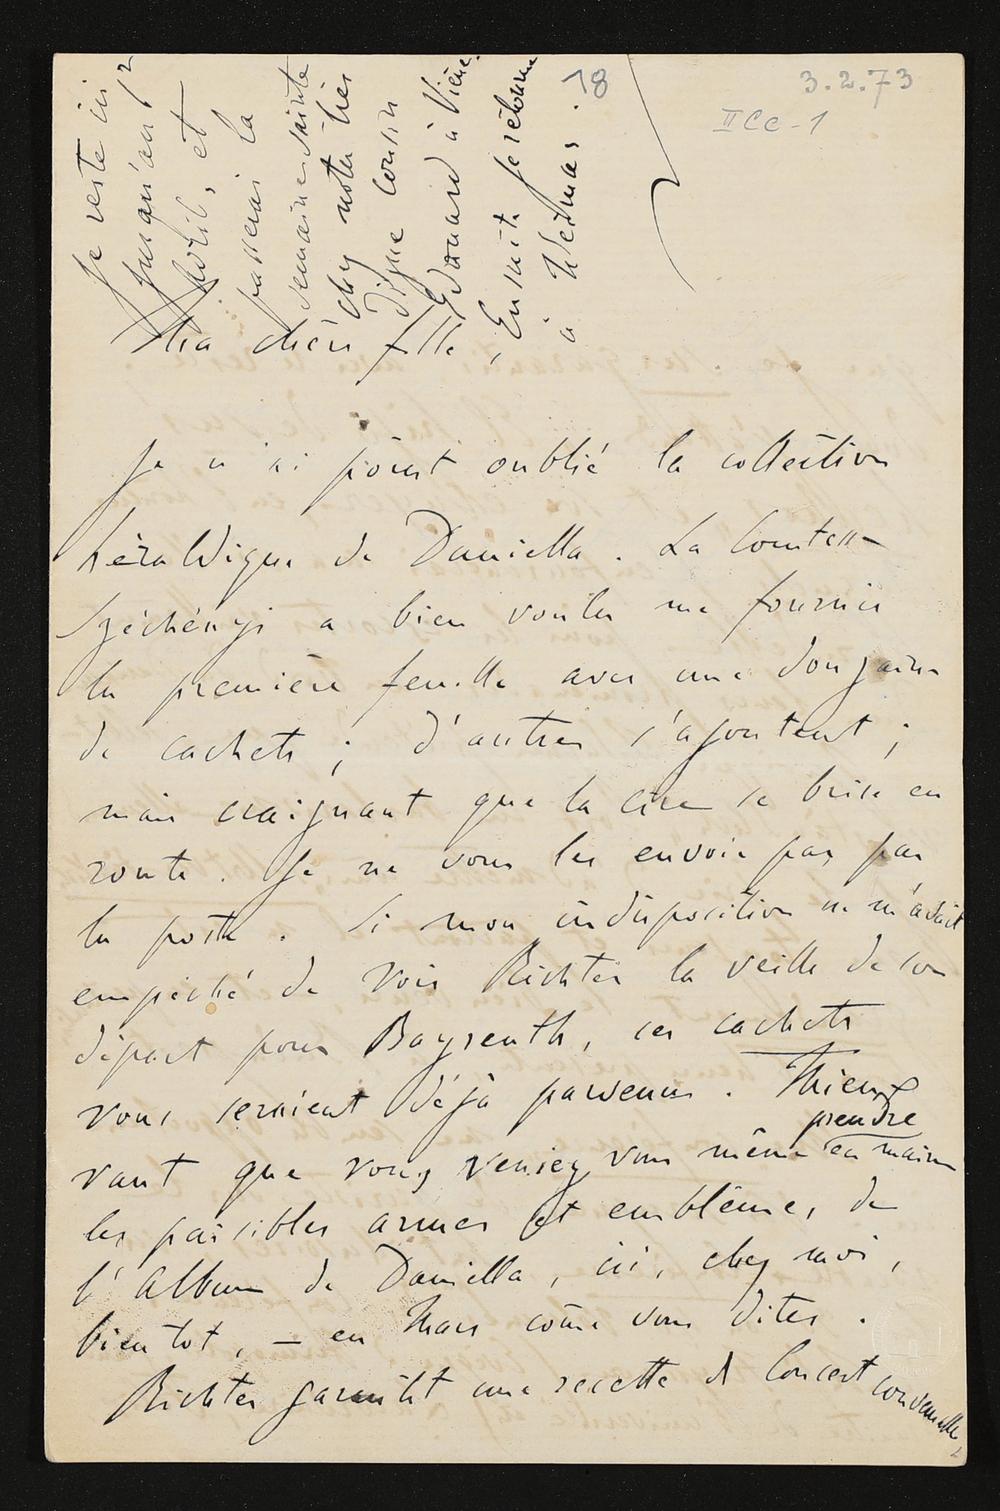 18
3.2.73
II Cc - 1
Je reste ici
jusqu'au 12
Avril, et
passerai la
semaine sainte
chez notre très
digne cousin
Edouard à Viēne.
Ensuite je retourne
à Weimar.
Ma chère fille,
Je n'ai point oublié la collection
héraldique de Daniella. La Comtesse
Széchényi a bien voulu me fournir
la première feuille avec une douzaine
de cachets ; d'autres s'ajoutent ;
mais craignant que la cire se brise en
route. Je ne vous les envoie pas par
la poste. Si mon indisposition ne m'avait
empéché de voir Richter la veille de son
départ pour Bayreuth, ces cachets
vous seraient déjà parvenus. Mieux
vaut que vous veniez vous même prendre en mains
les paisibles armes et emblèmes, de
l'Album de Daniella, ici, chez moi,
bientot, – en Mars come vous dites.
Richter garantit une recette de Concert convenable,